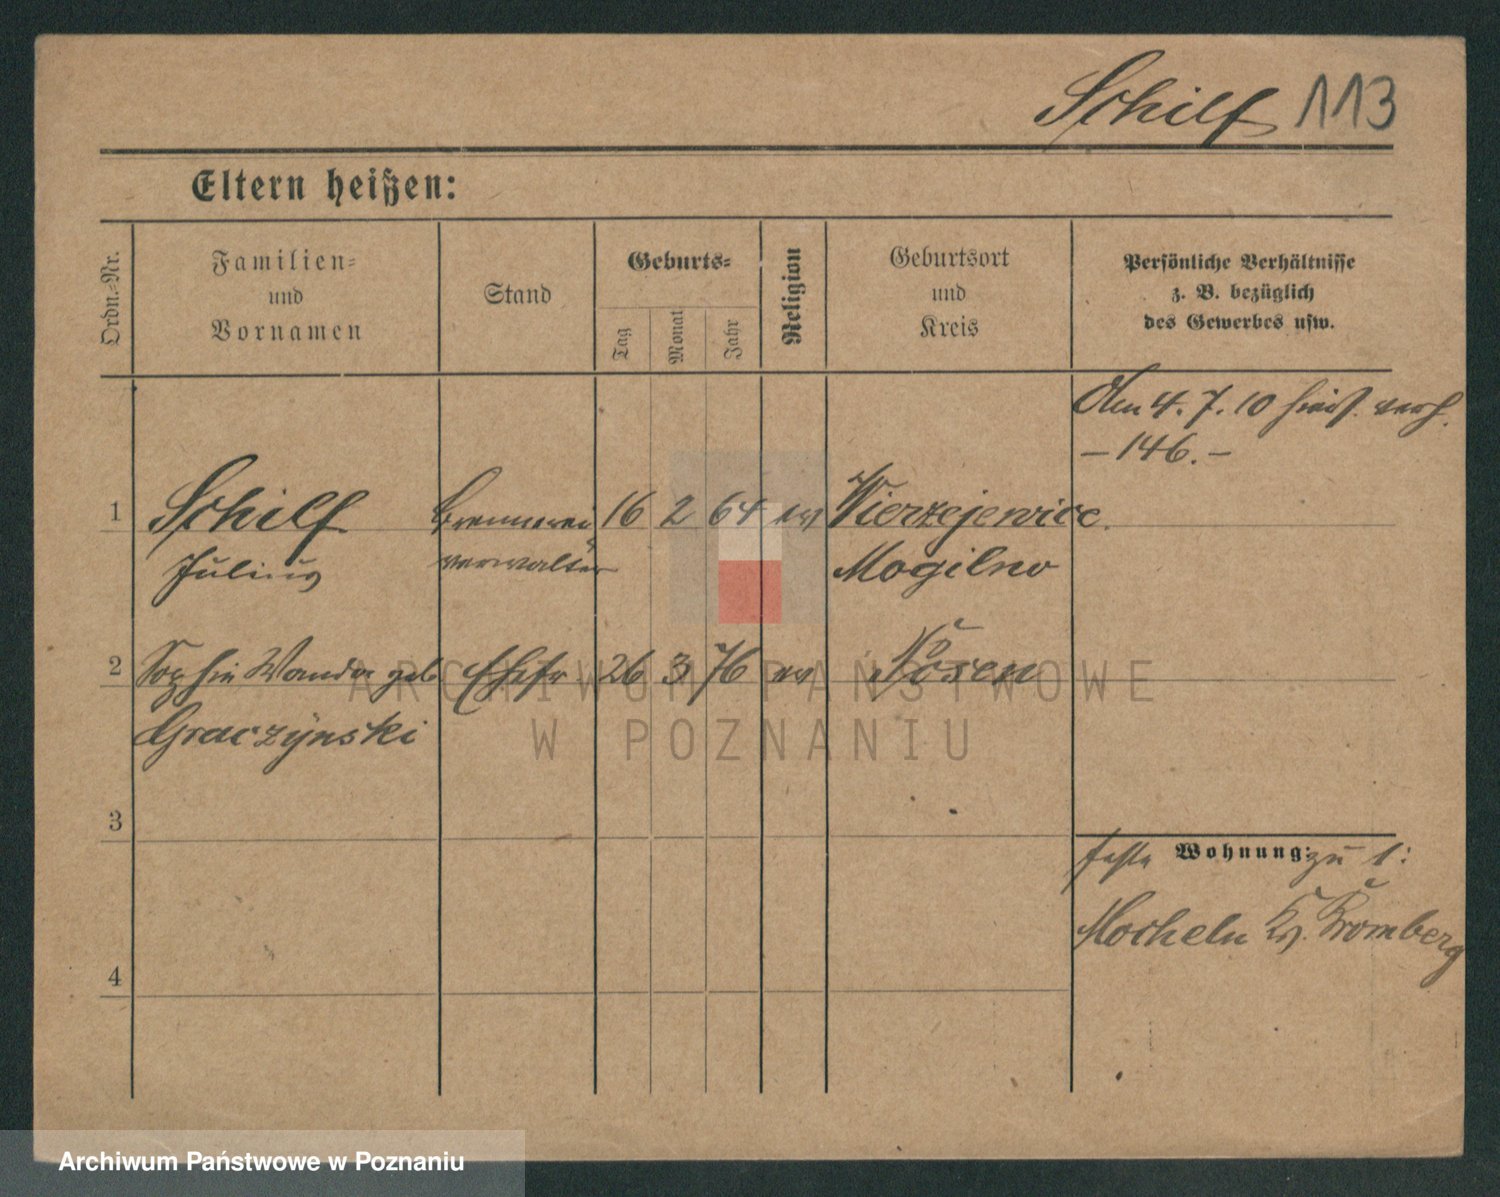 Schilf 113
Eltern heißen:
Ordn.-Nr.
Familien-
und
Vornamen
Stand
Geburts-
Tag
Monat
Jahr
Religion
Geburtsort
und
Kreis
Persönliche Verhältnisse
z. B. bezüglich
des Gewerbes usw.
Den 4. 7. 10 verh.
– 146. –
1 Schilf Brennerei 16 2 64 ev Wierzejewice.
Julius verwalter Mogilno
2 Sophie Wanda geb. Ehefr 26 3 76 ev Posen
Graczynski
3
feste Wohnung: zu 1:
Mocheln Kr. Bromberg
4
ARCHIWUM PAŃSTWOWE
W POZNANIU
Archiwum Państwowe w Poznaniu